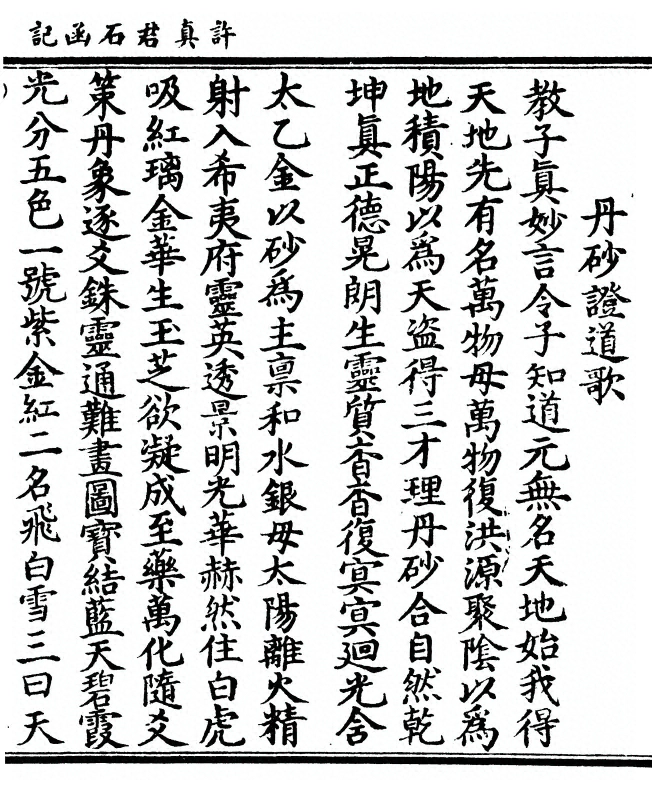 許真君石函記
丹砂證道歌
教子眞妙言令子知道元無名天地始我得
天地先有名萬物母萬物復洪源聚陰以爲
地積陽以爲天盜得三才理丹砂合自然乾
坤眞正德晃朗生靈質杳杳復㝠㝠廻光舍
太乙金以砂爲主稟和水銀母太陽離火精
射入希夷府靈英透景明光華赫然住白虎
吸紅璃金華生玉芝欲凝成至藥萬化隨爻
策丹象逐爻銖靈通難畫圖寶結藍天碧霞
光分五色一號紫金紅二名飛白雪三曰天